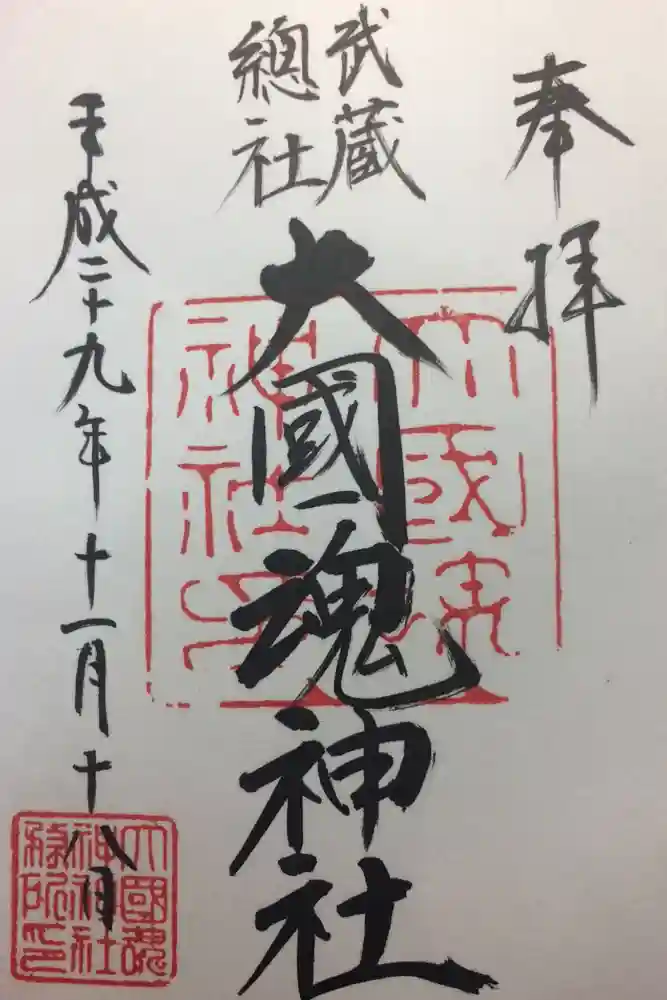 奉拝
武蔵
總社
大國魂神社
平成二十九年十一月十八日
大國魂
神社
大國魂
神社社
務所印